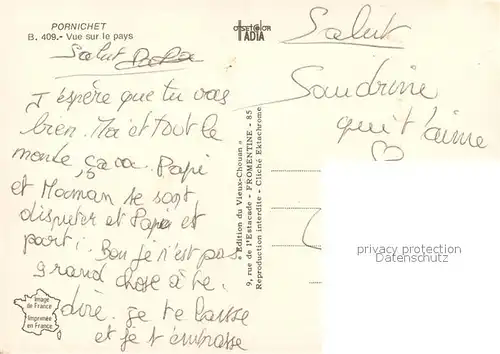 PORNICHET
B. 409.- Vue sur le pays
OFFSETCOLOR
IADIA
Salut
Salut Papa
J'espère que tu vas
bien. Ma et tout le
monte ça va. Papi
et Maman se sont
disputer et Papi et
parti. Bon Je n'est pas
grand chose à te.
dire. Je te laisse
et je t'embrasse
Sandrine
qui t'aime
« Edition du Vieux-Chouan »
9, rue de l'Estacade - FROMENTINE - 85
Reproduction interdite - Cliché Ektachrome
privacy protection
Datenschutz
Image
de France
Imprimée
en France